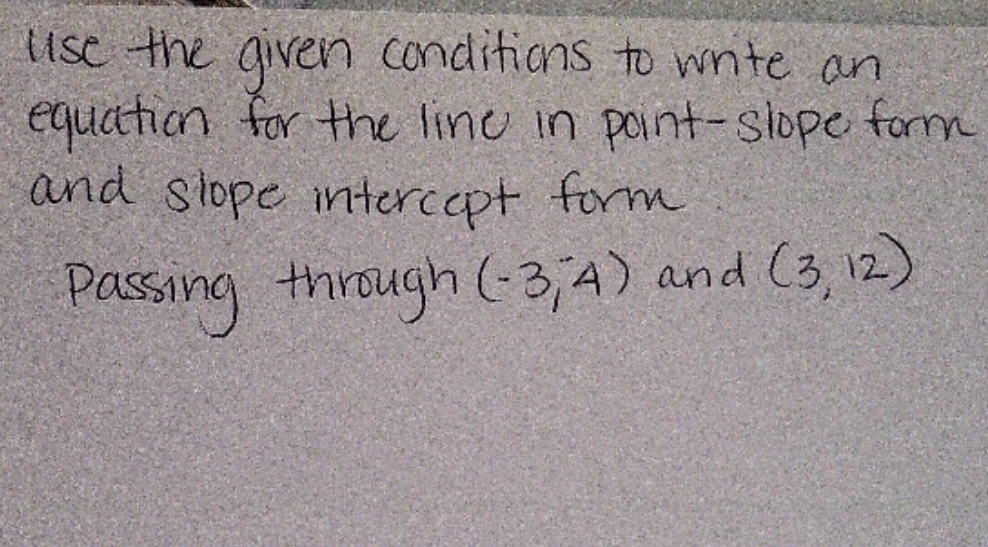 Use the given conditions to write an
equation for the line in point-slope form
and slope intercept form.
Passing through (-3,-4) and (3,12)